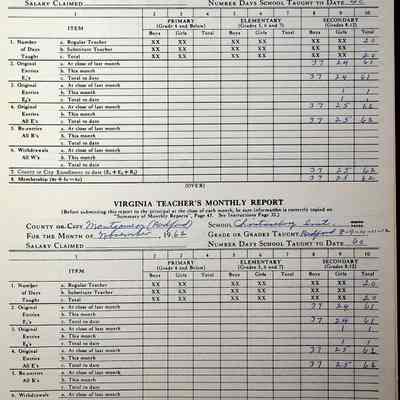 SALARY CLAIMED NUMBER DAYS SCHOOL TAUGHT TO DATE
1 2 3 4 5 6 7 8 9 10
ITEM PRIMARY (Grade 4 and Below) ELEMENTARY (Grades 5, 6 and 7) SECONDARY (Grades 8-12)
Boys Girls Total Boys Girls Total Boys Girls Total
1. Number a. Regular Teacher XX XX XX XX XX XX 20
of Days b. Substitute Teacher XX XX XX XX XX XX
Taught c. Total XX XX XX XX XX XX 20
2. Original a. At close of last month 37 24 61
Entries b. This month
E₁'s c. Total to date 37 24 61
3. Original a. At close of last month 1 1
Entries b. This month
E₂'s c. Total to date 1 1
4. Original a. At close of last month 37 25 62
Entries b. This month
All E's c. Total to date 37 25 62
5. Re-entries a. At close of last month
b. This month
All R's c. Total to date
6. Withdrawals a. At close of last month
b. This month
All W's c. Total to date
7. County or City Enrollment to date (E₁+E₂+R₂) 37 25 62
8. Membership 37 25 62
(OVER)
VIRGINIA TEACHER'S MONTHLY REPORT
(Before submitting this report to the principal at the close of each month, be sure information is correctly copied on
"Summary of Monthly Reports", Page 47. See Instructions Page 32.)
COUNTY OR CITY Montgomery (Radford) SCHOOL Christiansburg Inst.
FOR THE MONTH OF November, 1962 GRADE OR GRADES TAUGHT
SALARY CLAIMED NUMBER DAYS SCHOOL TAUGHT TO DATE 60
1 2 3 4 5 6 7 8 9 10
ITEM PRIMARY (Grade 4 and Below) ELEMENTARY (Grades 5, 6 and 7) SECONDARY (Grades 8-12)
Boys Girls Total Boys Girls Total Boys Girls Total
1. Number a. Regular Teacher XX XX XX XX XX XX 20
of Days b. Substitute Teacher XX XX XX XX XX XX
Taught c. Total XX XX XX XX XX XX 20
2. Original a. At close of last month 37 24 61
Entries b. This month
E₁'s c. Total to date 37 24 61
3. Original a. At close of last month 1 1
Entries b. This month
E₂'s c. Total to date 1 1
4. Original a. At close of last month 37 25 62
Entries b. This month
All E's c. Total to date 37 25 62
5. Re-entries a. At close of last month
b. This month
All R's c. Total to date
6. Withdrawals a. At close of last month